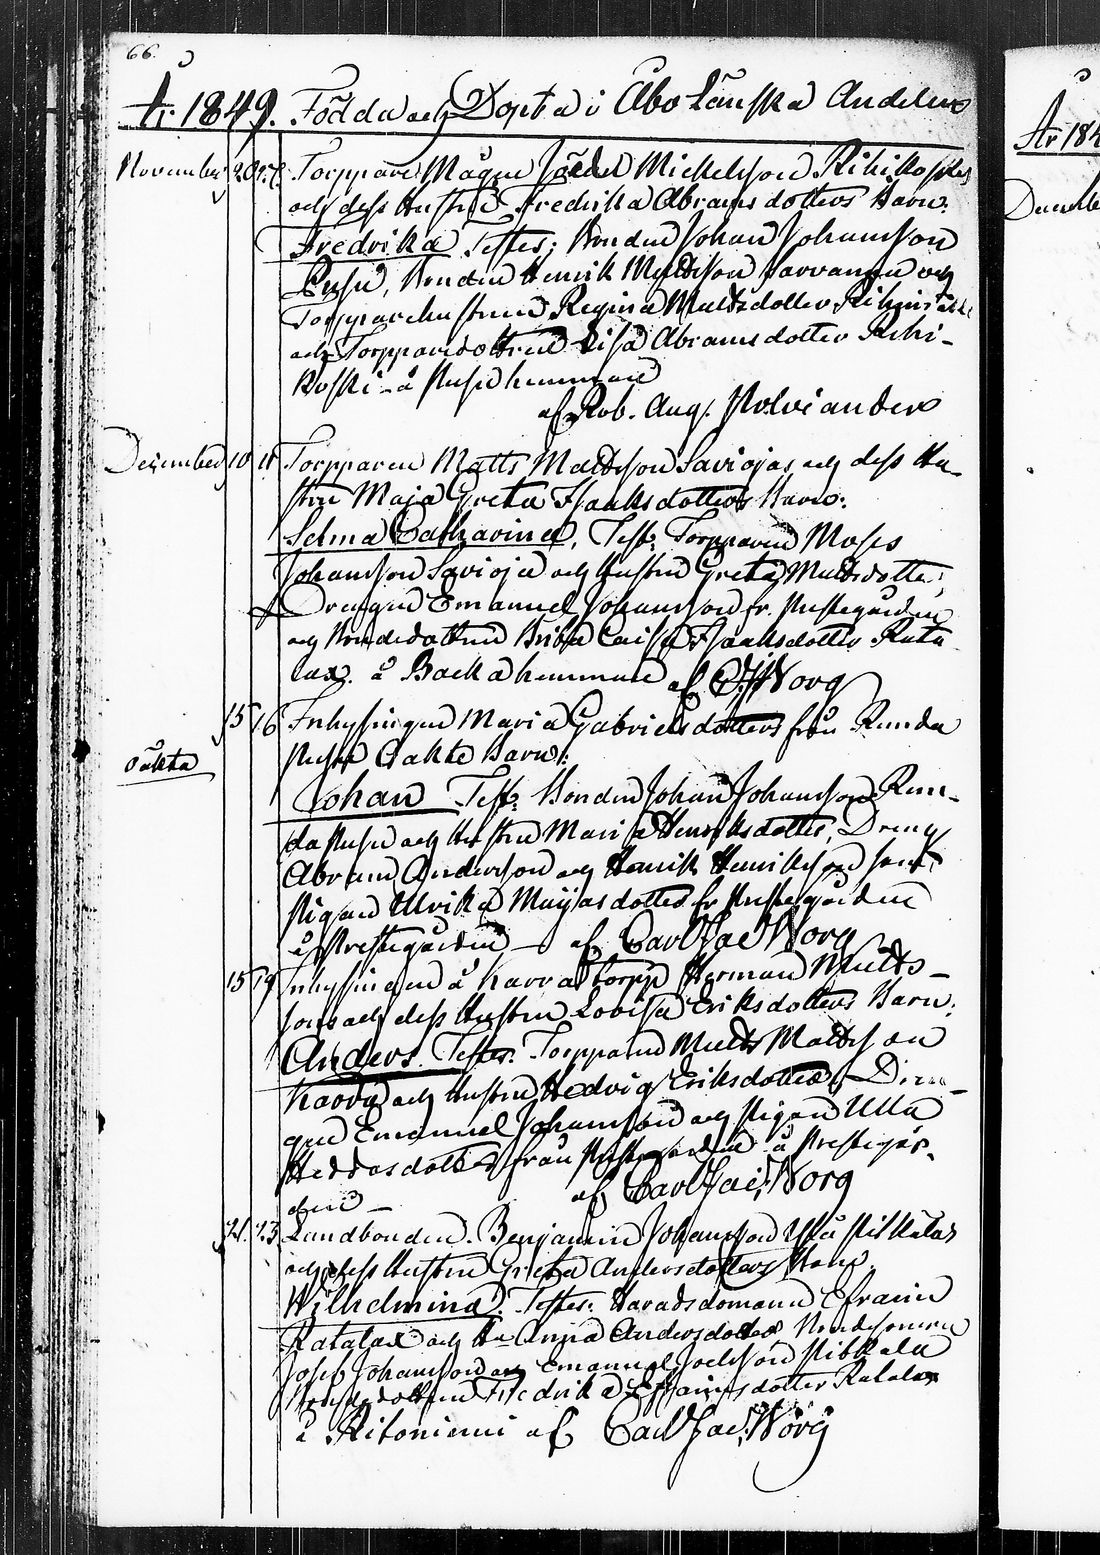 66.
År 1849. Födda och Döpta i Åbo Länska Andelen
November 20 Torppare Mågen Joel Michelsson Rihikoskis
och dess Hustru Fredrika Abrams dotters Barn:
Fredrika Testes: Bonden Johan Johansson
Bonden Henrik Mattsson och
Torpparehustrun Regina Mattsdotter
och Torpparedottren Lisa Abramsdotter Rihi-
koski å hemman
af Rob. Aug. Polviander
December 10 11 Torpparen Matts Mattsson Saviojas och dess Hu-
stru Maja Greta Isaaksdotters Barn:
Selma Catharina, Test: Torpparen Moses
Johansson Savioja och Hustru Greta Mattsdotter,
Drengen Emanuel Johansson fr. Prestegården
och Bondedottren Brita Caisa Isaaksdotter Rata
lax. å Backa hemman af C. J. Borg
15 16 Inhysingen Maria Gabrielsdotters från Runda
oäkta Barn:
oäkta
Johan Test: Bonden Johan Johansson Run-
da och Hustru Maria Henriksdotter, Dreng
Abram Andersson och Henrik Henriksson samt
Pigan Ulrika Mayasdotter fr Prestegården
å Prestegården af Carl Jac Borg
15 19 Inhysingen å Karra torpp Herman Matts-
sons och dess Hustru Lovisa Eriksdotters Barn:
Anders. Testes: Torpparen Matts Mattsson
Karra och Hustru Hedvig Eriksdotter, Dren-
gen Emanuel Johansson och Pigan Ulla
Heddasdotter från Prestegården å Prestegår-
den af Carl Jac: Borg
21. 23 Landbonden Benjamin Johansson
och dess Hustru Greta Andersdotters Barn:
Wilhelmina. Testes: Häradsdomaren Efraim
Ratalax och Hu Anna Andersdotter Bondesonen
Josef Johansson och Emanuel Joelsson Pikkala
Bondedottren Fredrika Efraimsdotter Ratalax
å Ritoniemi af Carl Jac: Borg
År 184
Decembe